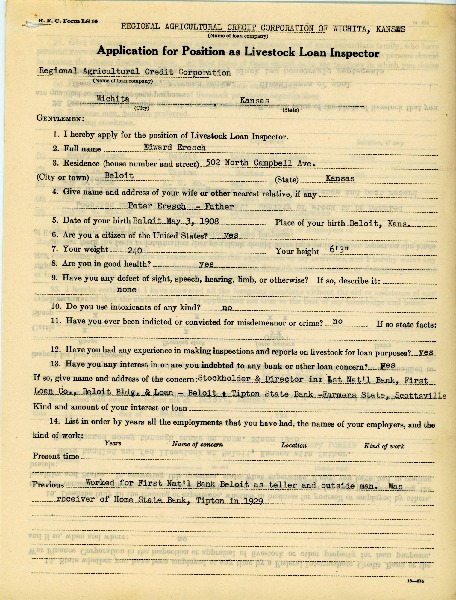 REGIONAL AGRICULTURAL CREDIT CORPORATION OF WICHITA, KANSAS
(Name of loan company)
Application for Position as Livestock Loan Inspector
Regional Agricultural Credit Corporation
(Name of loan company)
Wichita, Kansas
(City) (State)
GENTLEMEN:
1. I hereby apply for the position of Livestock Loan Inspector.
2. Full name Edward Eresch
3. Residence (house number and street) 502 North Campbell Ave.
(City or town) Beloit (State) Kansas
4. Give name and address of your wife or other nearest relative, if any
Peter Eresch - Father
5. Date of your birth Beloit May 3, 1908 Place of your birth Beloit, Kans.
6. Are you a citizen of the United States? yes
7. Your weight 240 Your height
8. Are you in good health? yes
9. Have you any defect of sight, speech, hearing, limb, or otherwise? If so, describe it:
none
10. Do you use intoxicants of any kind? no
11. Have you ever been indicted or convicted for misdemeanor or crime? no If so state facts:
12. Have you had any experience in making inspections and reports on livestock for loan purposes? yes
13. Have you any interest in or are you indebted to any bank or other loan concern? yes
If so, give name and address of the concern: Stockholder & Director in: 1st Nat'l Bank, First
Loan Co., Beloit Bldg. & Loan - Beloit, Tipton State Bank - Farmers State, Scottsville
Kind and amount of your interest or loan
14. List in order by years all the employments that you have had, the names of your employers, and the
kind of work:
Years Name of concern Location Kind of work
Present time
Previous Worked for First Nat'l Bank Beloit as teller and outside man. Was
receiver of Home State Bank, Tipton in 1929